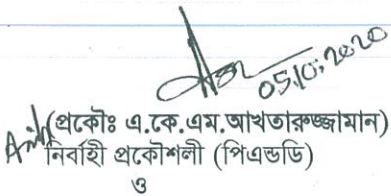 05.10.2020
(প্রকৌঃ এ.কে.এম.আখতারুজ্জামান)
নির্বাহী প্রকৌশলী (পিএন্ডডি)
ও